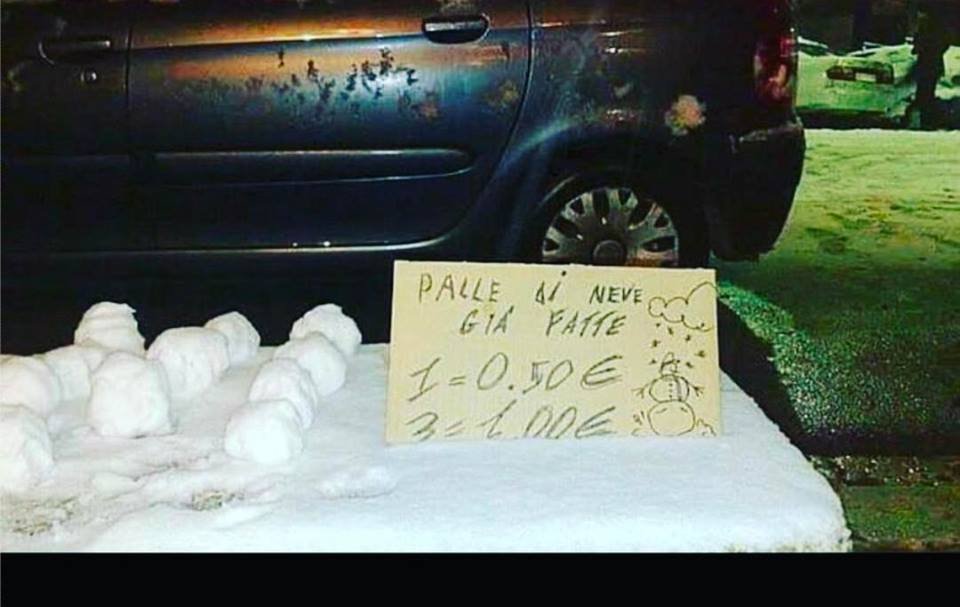 PALLE di NEVE
GIÀ FATTE
1 = 0.50 €
3 = 1.00 €